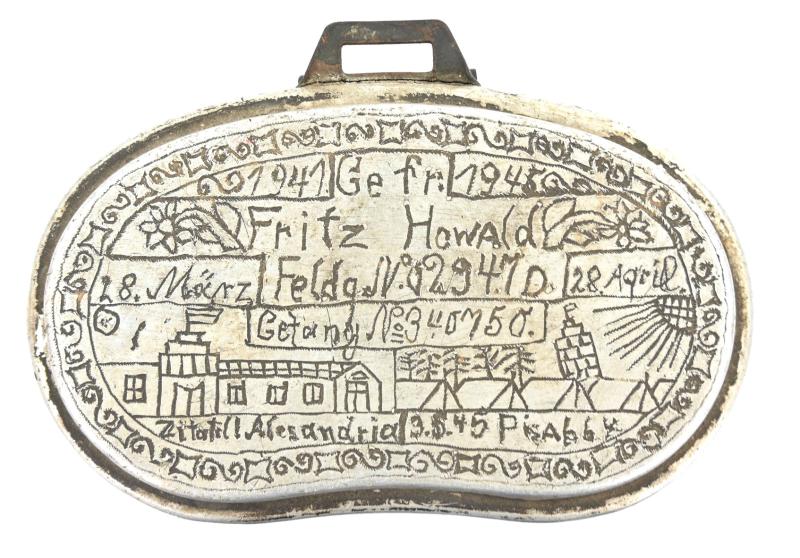 1941 Gefr. 1945
Fritz Howald
28. März Feldg. No. 02947 D. 28. April.
Gefang No 340750.
Zitatell Alesandria 3.5.45 Pisa